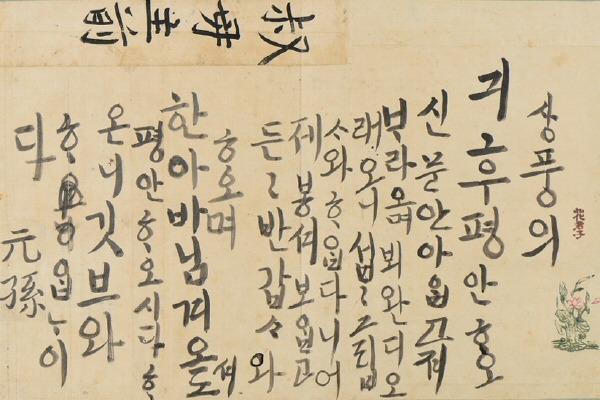 叔母主前
상풍의
긔후평안ᄒᆞ오
신문안아ᄋᆞᆸ고져
ᄇᆞ라오며뵈완디오
래오니섭〃그립
ᄉᆞ와ᄒᆞᄋᆞᆸ다니어
제봉셔보ᄋᆞᆸ고
든〃반갑ᄉᆞ와
ᄒᆞ오며
한아바님겨오셔도
평안ᄒᆞ오시다ᄒᆞ
온니깃브와
ᄒᆞᄋᆞᆸᄂᆞ이
다
元孫
花君子